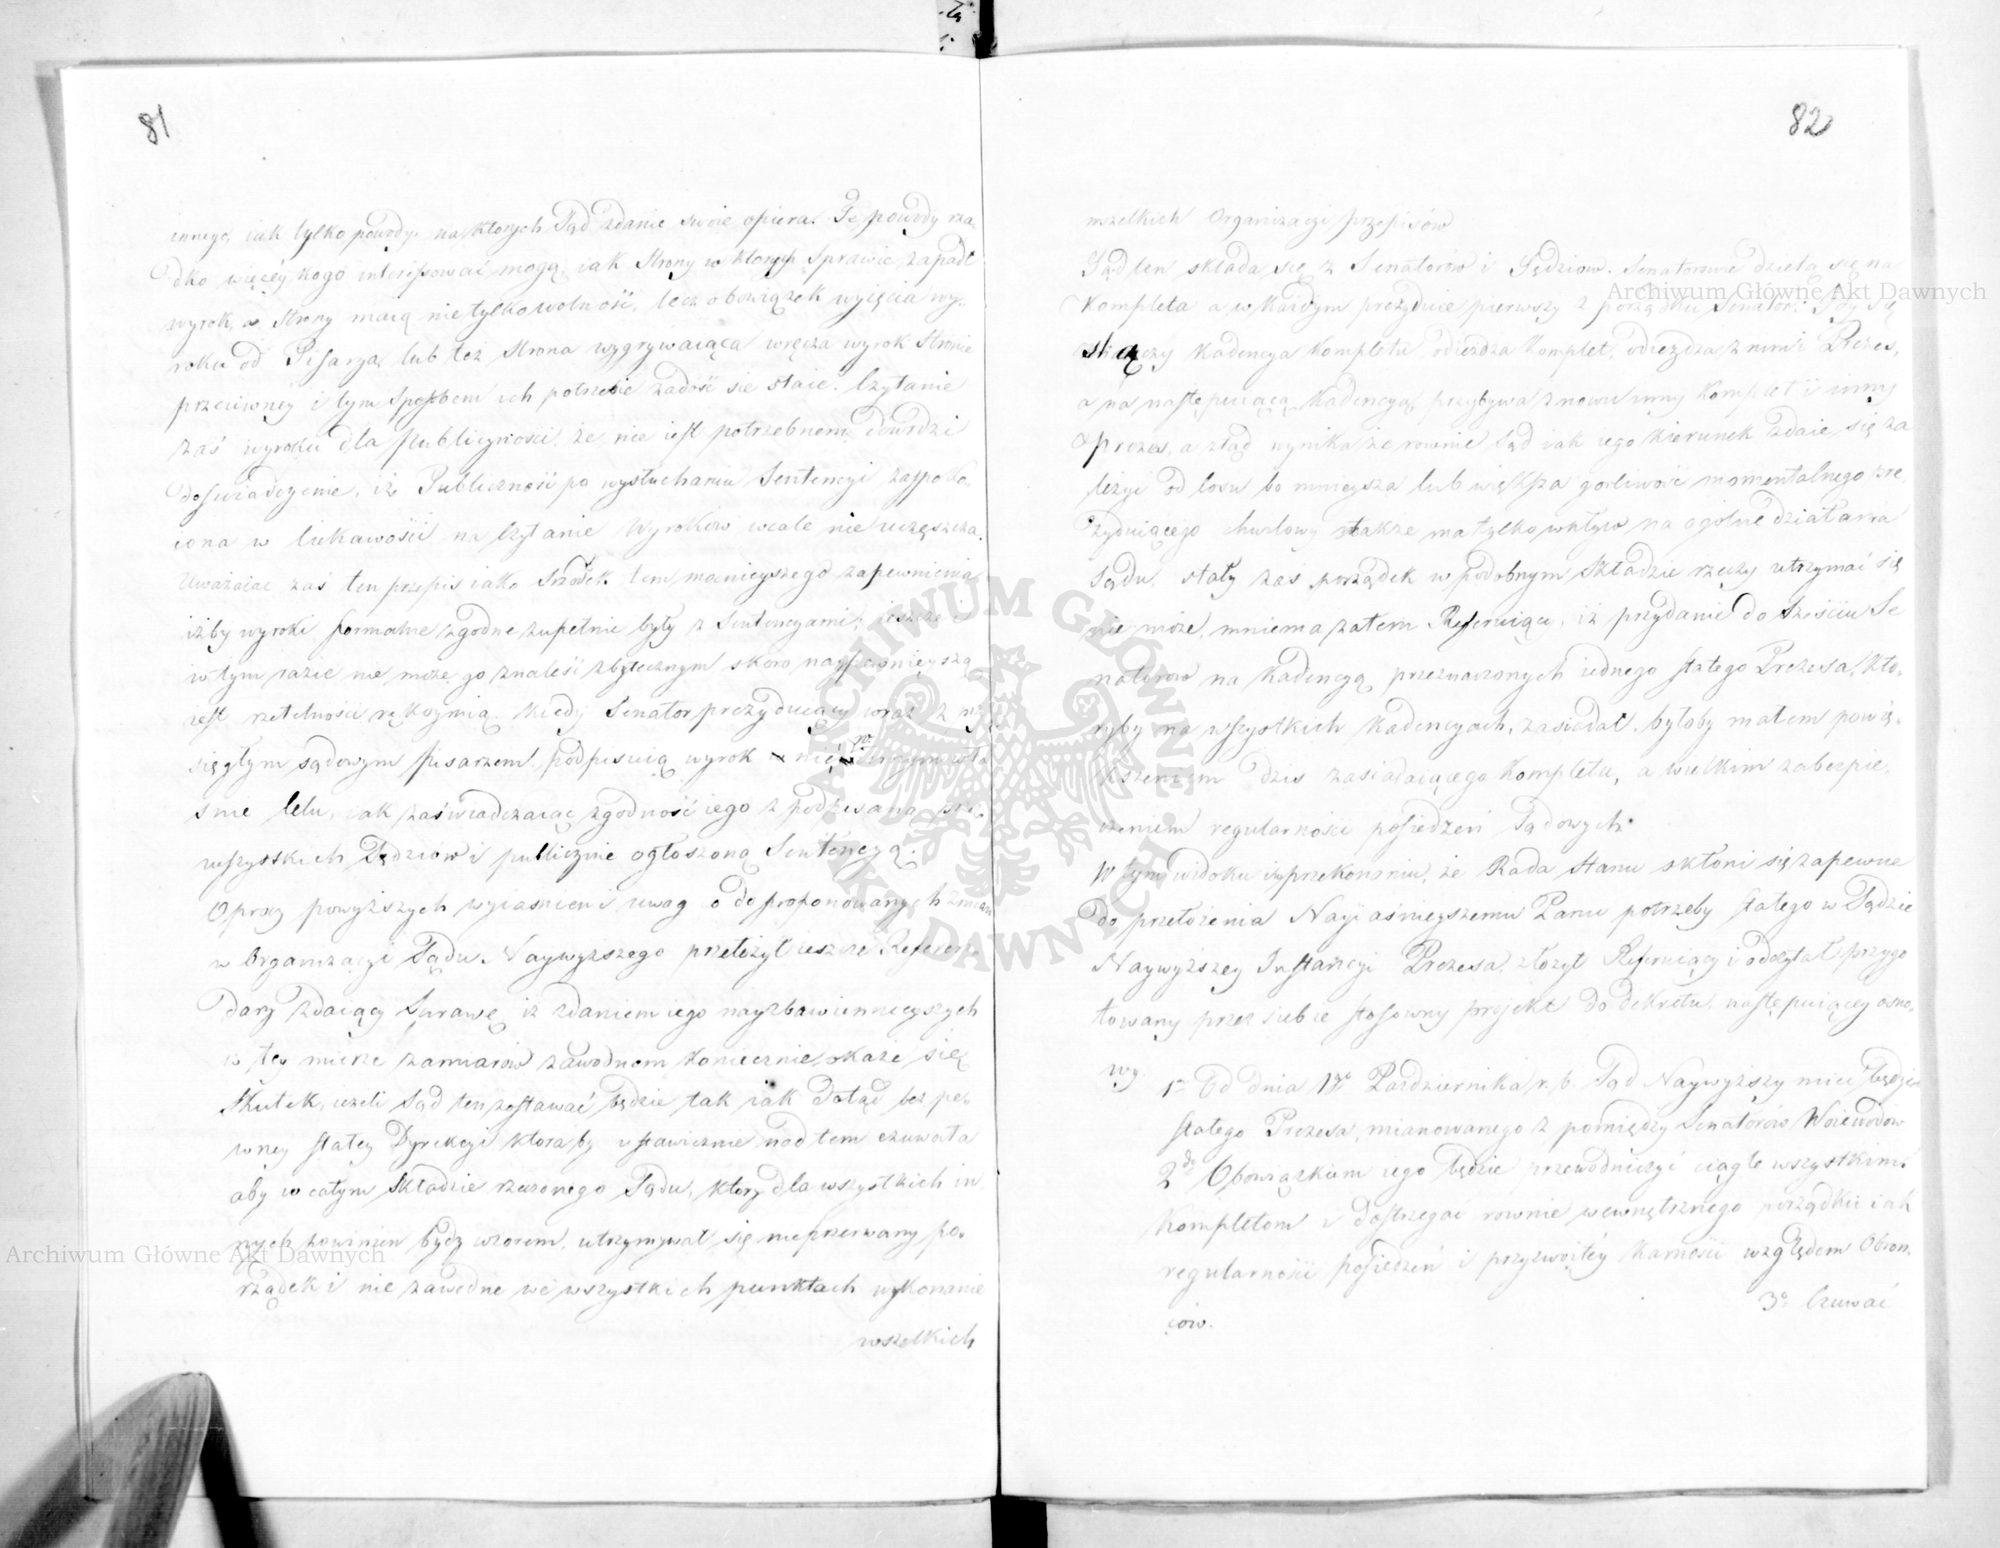 81
innego, iak tylko powody, na ktorych Sąd zdanie swoie opiera. Te powody rza-
dko więcéy kogo interessować mogą, iak Strony w ktorych Sprawie zapadł
wyrok, a Strony maią nie tylko wolność, lecz obowiązek wyięcia wy-
roku od Pisarza, lub też Strona wygrywaiąca wręcza wyrok Stronie
przeciwney i tym sposobem ich potrzebie zadość się staie. Czytanie
zaś wyroku dla Publiczności, że nie iest potrzebnem, dowodzi
doświadczenie, iż Publiczność po wysłuchaniu Sentencyi zaspoko-
iona w ciekawości na Czytanie wyroków wcale nie uczęszcza.
Uważaiąc zaś ten przepis iako środek tem mocnieyszego zapewnienia
iżby wyroki formalne zgodne zupełnie były z Sentencyami, ieszcze i
w tym razie nie może go znaleść zbytecznym skoro naypewnieyszą
iest rzetelności rękoymią, kiedy Senator prezyduiący wraz z
sięgłym sądowym pisarzem podpisuią wyrok nie w
śnie celu, iak zaświadczaiąc zgodność iego z podpisaną przez
wszystkich Sędziów i publicznie ogłoszoną Sentencyą.
Oprócz powyższych wyiaśnień i uwag co do proponowanych zmian
w Organizacyi Sądu Naywyższego przełożył ieszcze Referen-
darz zdaiący Sprawę, iż zdaniem iego nayzbawiennieyszych
w tey mierze zamiarów zawodnem koniecznie okaże się
Skutek, ieżeli Sąd ten zostawać będzie tak iak dotąd bez pe-
wney stałey Dyrekcyi, ktoraby ustawicznie nad tem czuwała
aby w całym składzie rzeczonego Sądu, który dla wszystkich in-
nych powinien bydź wzorem, utrzymywał się nieprzerwany po-
rządek i nie zawodne we wszystkich punktach wykonanie
wszelkich
82
wszelkich Organizacyi przepisów
Sąd ten składa się z Senatorów i Sędziów. Senatorowie dzielą się na
Kompleta a w każdym prezyduie pierwszy z porządku Senator. Gdy się
skączy Kadencya Kompletu, odieżdża Komplet, odieżdża z nim i Prezes,
a na następuiącą Kadencyą przybywa znowu inny Komplet i inny
Prezes, a ztąd wynika że rownie Sąd iak iego kierunek zdaie się za
leżyć od losu bo mnieysza lub większa gorliwość momentalnego pre
zyduiącego chwilowy także ma tylko wpływ na ogólne działania
Sądu, stały zaś porządek w podobnym Składzie rzeczy utrzymać się
nie może, mniema zatem Referuiący, iż przydanie do Sześciu Se
natorów na Kadencyą przeznaczonych iednego stałego Prezesa, któ-
ryby na wszystkich Kadencyach zasiadał, byłoby małem powię-
kszeniem dziś zasiadaiącego Kompletu, a wielkim zabezpie-
czeniem regularności posiedzeń Sądowych.
W tym widoku i w przekonaniu, że Rada Stanu skłoni się zapewne
do przełożenia Nayiaśnieyszemu Panu potrzeby stałego w Sądzie
Naywyższey Instancyi Prezesa, złożył Referuiący i odczytał przygo
towany przez siebie stosowny projekt do dekretu, następuiącey osno-
wy.
1o Od dnia 1go Pazdziernika r. b. Sąd Naywyższy mieć będzie
stałego Prezesa, mianowanego z pomiędzy Senatorów Woiewodów
2do Obowiązkiem iego będzie przewodniczyć ciągle wszystkim
Kompletom i dostrzegać rownie wewnętrznego porządku iak
regularności posiedzeń i przyzwoitéy karności względem Obroń-
ców.
3o Czuwać
Archiwum Główne Akt Dawnych
Archiwum Główne Akt Dawnych
ARCHIWUM GŁÓWNE AKT DAWNYCH